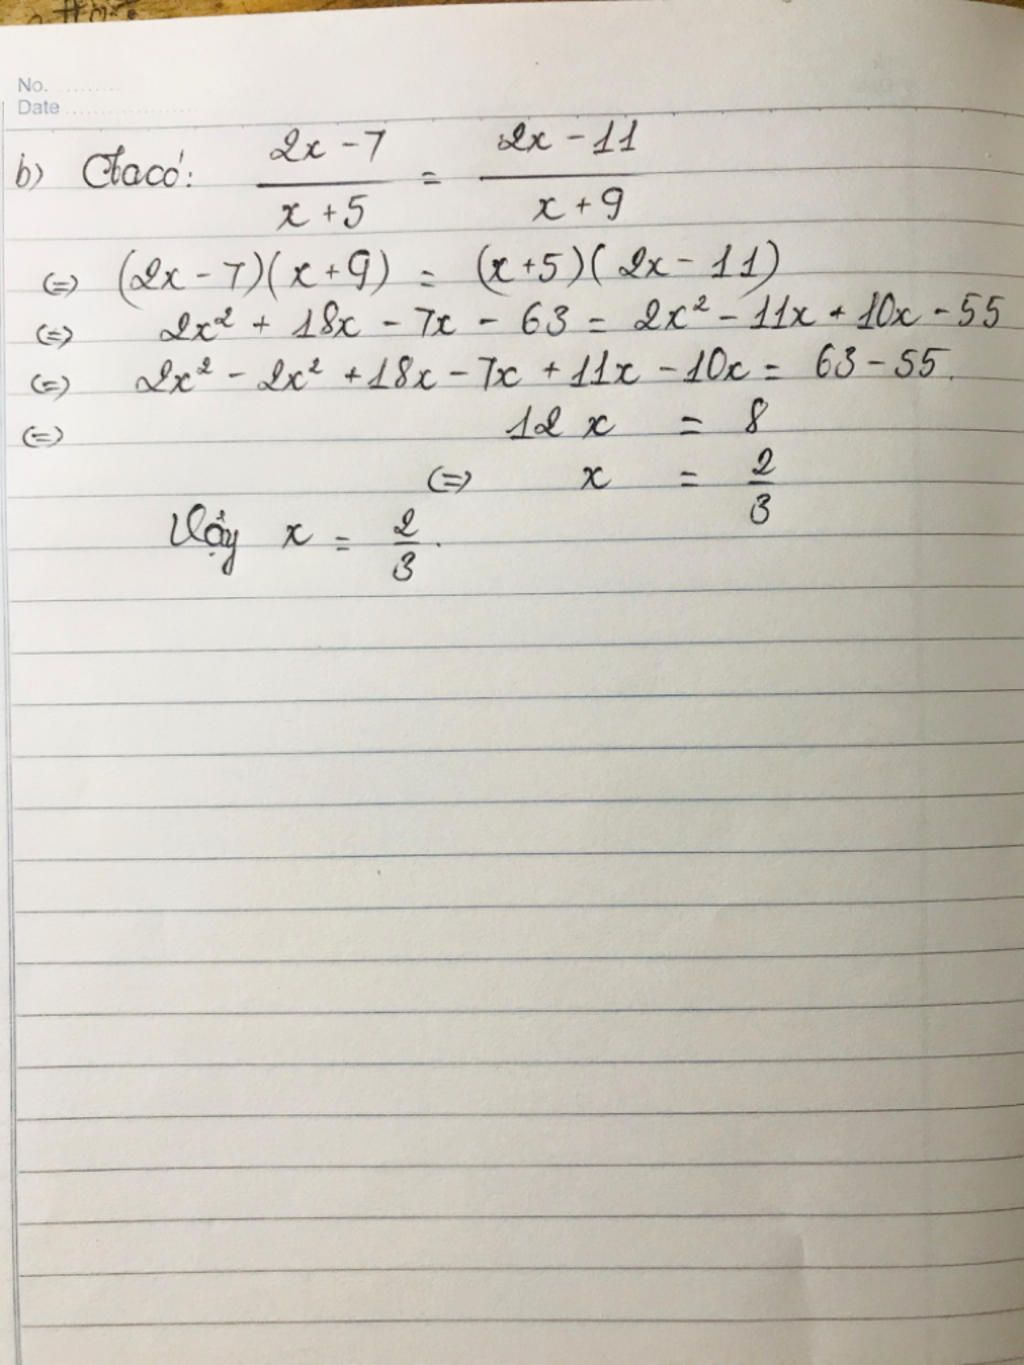 No.
Date
b) Ta có: (2x - 7)/(x + 5) = (2x - 11)/(x + 9)
(=) (2x - 7)(x + 9) = (x + 5)(2x - 11)
(=) 2x² + 18x - 7x - 63 = 2x² - 11x + 10x - 55
(=) 2x² - 2x² + 18x - 7x + 11x - 10x = 63 - 55.
(=) 12x = 8
(=) x = 2/3
Vậy x = 2/3.